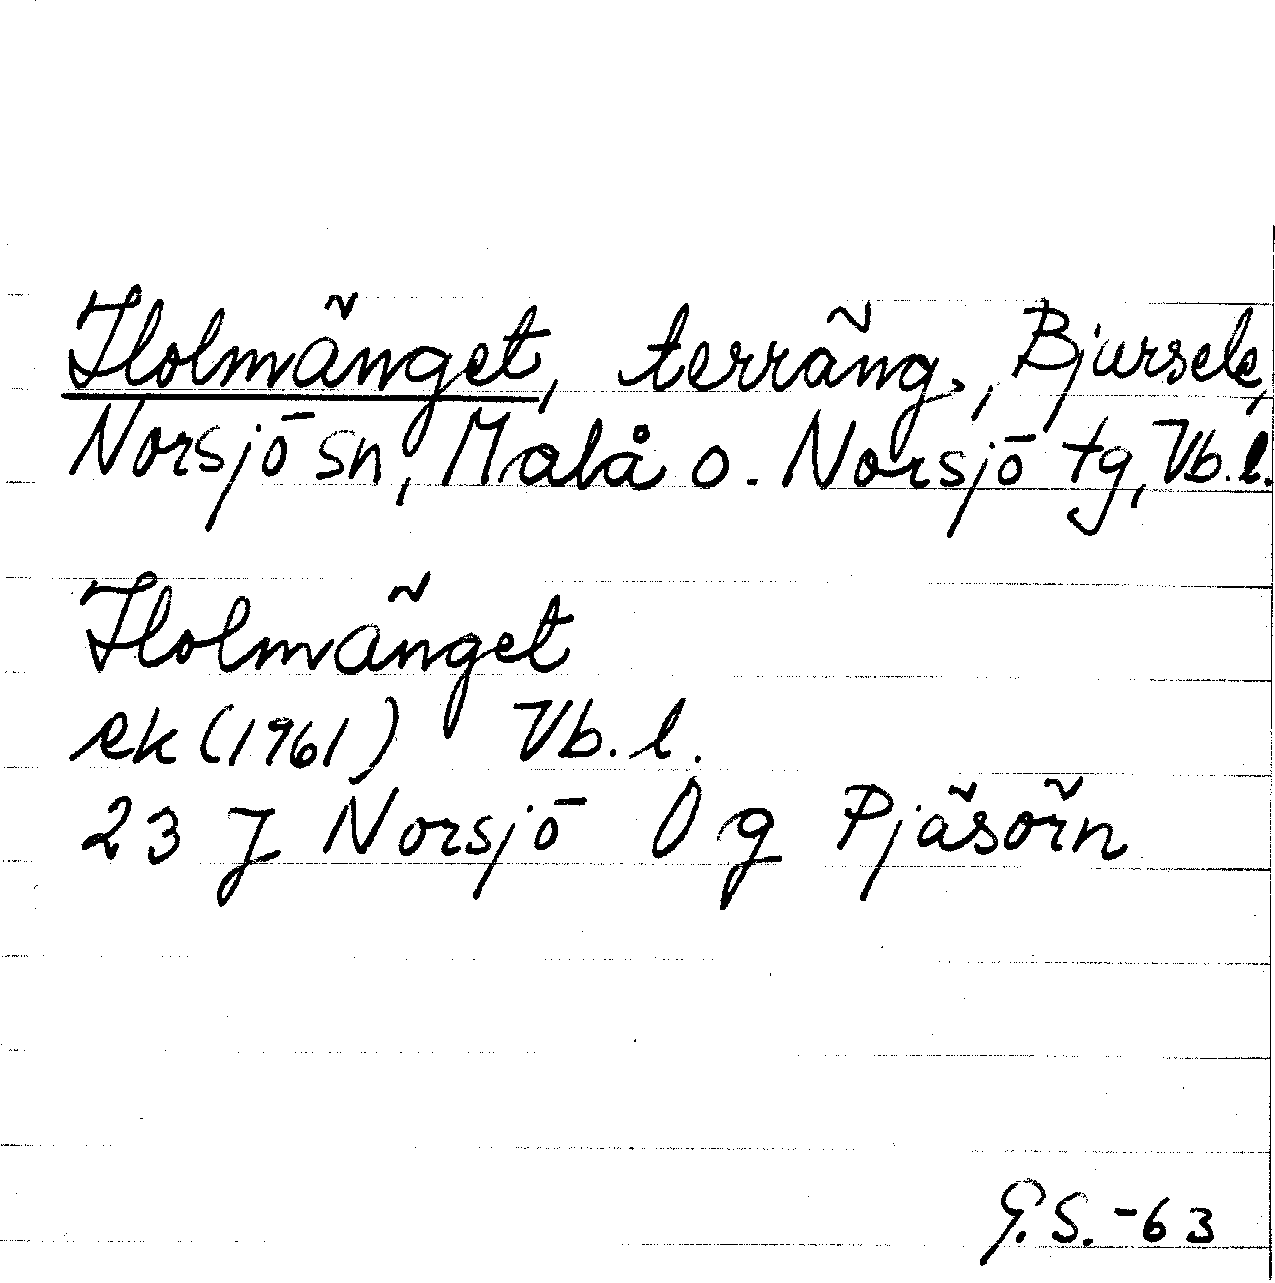 Holmänget, terräng, Bjursele,
Norsjö sn, Malå o. Norsjö tg, Vb.l.
Holmänget
ek (1961) Vb. l.
23 J Norsjö 0 g Pjäsörn
G.S. -63